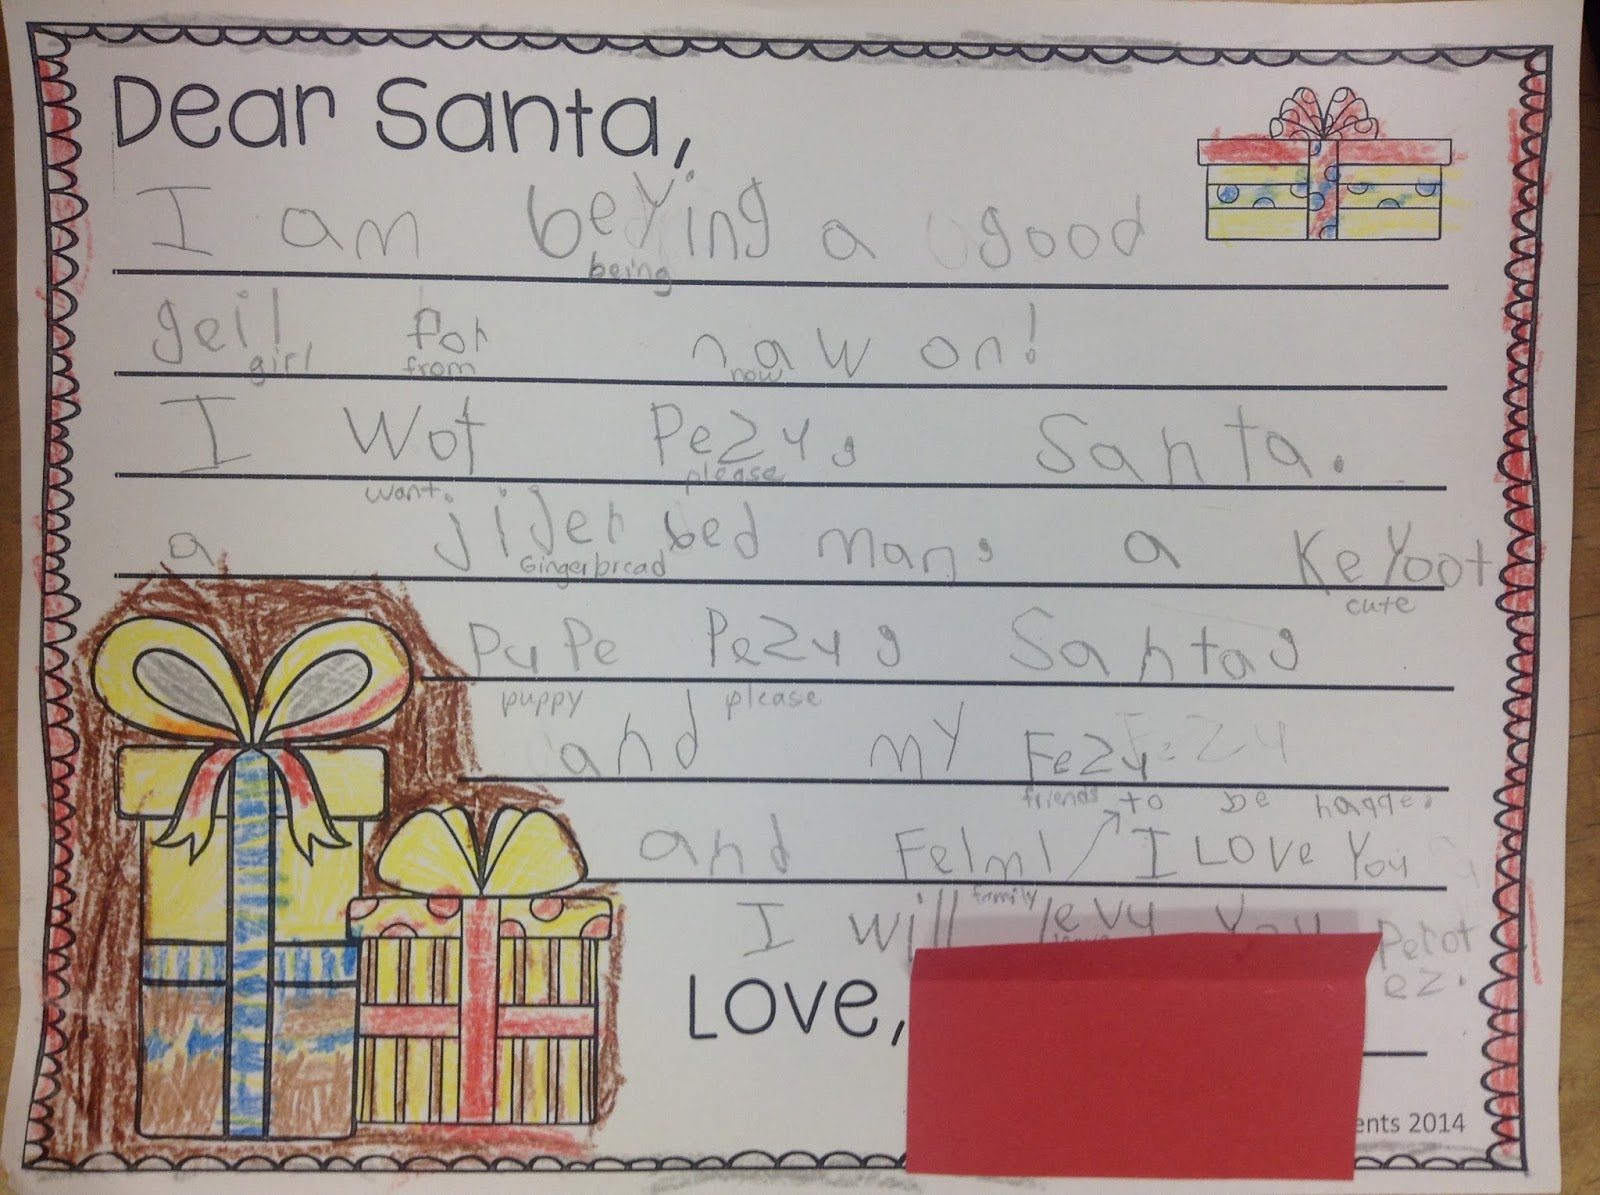 Dear Santa,
I am beYing a good
being
geil for naw on!
girl from now
I Wot Pezy, Santa.
want. please
a jijer bed man, a KeYoot
Gingerbread cute
PyPe Pezy, Santa,
puppy please
and my Fezy
friends to be happe.
and Felml I Love You
family
I will levy You Pecot
ez.
Love,
ents 2014